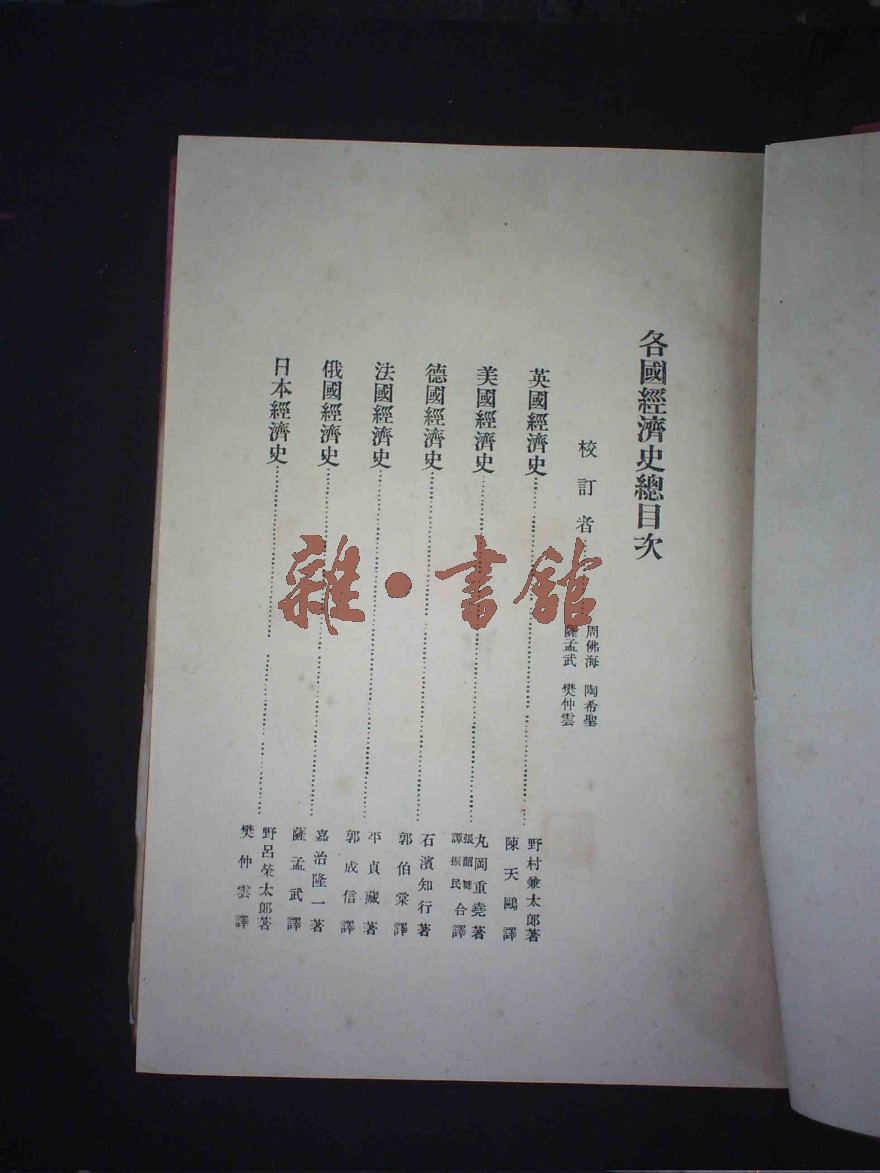 各國經濟史總目次
校訂者
周佛海 陶希聖
薩孟武 樊仲雲
英國經濟史
野村兼太郎著
陳天鷗譯
美國經濟史
丸岡重堯著
張韶舞
譚振民合譯
德國經濟史
石濱知行著
郭伯棠譯
法國經濟史
平貞藏著
郭成信譯
俄國經濟史
嘉治隆一著
薩孟武譯
日本經濟史
野呂榮太郎著
樊仲雲譯
雜·書館